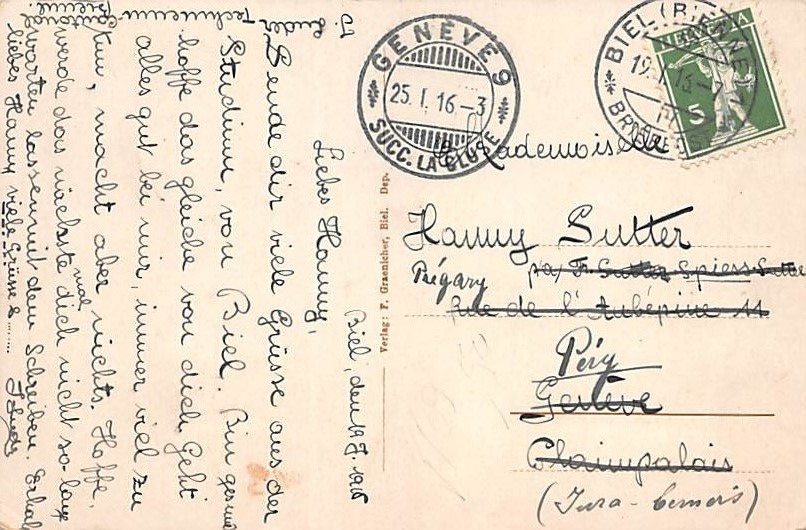 Biel, den 19. I. 1916
Liebes Hanny,
Sende dir viele Grüsse aus der
Studium, von Biel. Bin gerne
Technicum
hoffe das gleiche von dich. Geht
alles gut bei mir, immer viel zu
tun, macht aber nichts. Hoffe,
werde das nächste mal dich nicht so lange
warten lassen mit dem Schreiben.
liebes Hanny viele Grüsse
GENÈVE 9
25. I. 16 - 3
SUCC. LA CLUSE
BIEL (BIENNE)
19. I. 16 - 7
HELVETIA
5
Mademoiselle
Hanny Sutter
Prégary p/a/ Fr. Sutter Spiess-Sutter
Rue de l'Aubépine 11
Péry
Genève
Plainpalais
(Jura-bernois)
Verlag: F. Graenicher, Biel. Dep.